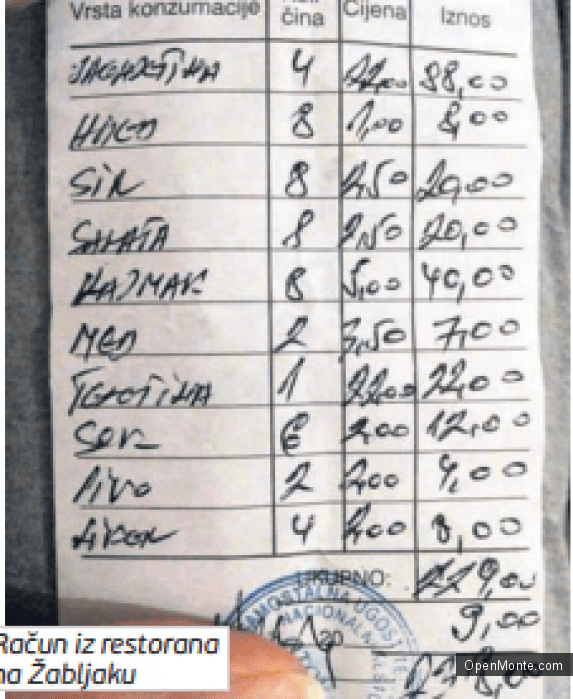 Vrsta konzumacije čina Cijena Iznos
JAGNJETINA 4 22,00 88,00
8 1,00 8,00
SIR 8 2,50 20,00
SALATA 8 2,50 20,00
KAJMAK 8 5,00 40,00
MED 2 3,50 7,00
TELETINA 1 22,00 22,00
SOK 6 2,00 12,00
PIVO 2 2,00 4,00
4 2,00 8,00
UKUPNO: 229,00
9,00
20
SAMOSTALNA UGOST
NACIONAL
Račun iz restorana
na Žabljaku
OpenMonte.com